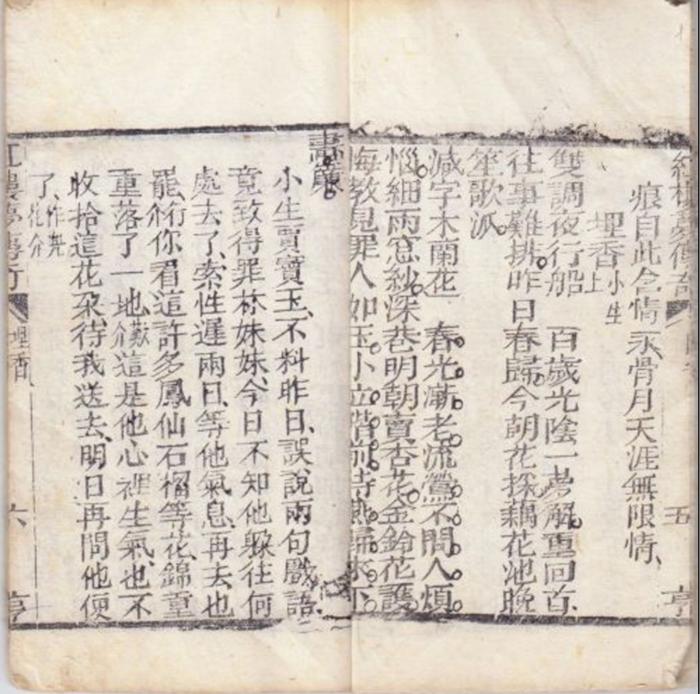 紅樓夢傳奇 五 亨
痕自此念情永骨月天涯無限情、
埋香 小生上
雙調夜行船 百歲光陰一夢解。重回首
往事難排。昨日春歸。今朝花採。藕花池晚
笙歌派。
減字木蘭花 春光漸老。流鶯不問人煩
惱。細雨窓紗。深巷明朝賣杏花。金鈴花護。
悔教見罪人如玉。小立階前。待燕歸來下
畫簾。
小生賈寶玉、不料昨日、誤說兩句戲語
竟致得罪林妹妹、今日不知他躲往何
處去了、索性遲兩日、等他氣息、再去也
罷、行介你看這許多鳳仙石榴等花、錦重
重落了一地、歎介這是他心裡生氣、也不
收拾這花朶、待我送去、明日再問他便
了、作兜花介
紅樓夢傳奇 埋香 六 亨